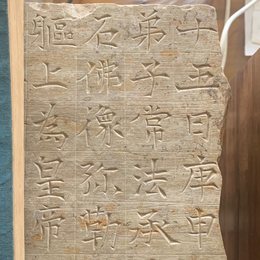 十五日庚申
弟子常法承
石佛像弥勒
軀上為皇帝